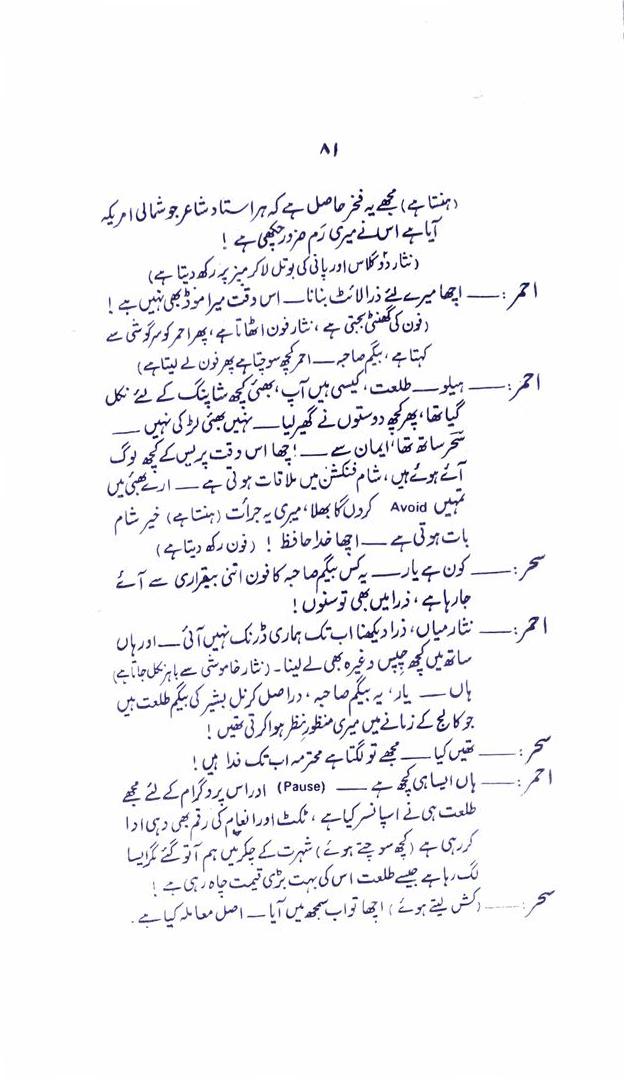 ۸۱
(ہنستا ہے) مجھے یہ فخر حاصل ہے کہ ہر استاد شاعر جو شمالی امریکہ
آیا ہے اس نے میری رَم ضرور چکھی ہے !
(نثار دو گلاس اور پانی کی بوتل لا کر میز پر رکھ دیتا ہے)
احمر : —— اچھا میرے لئے ذرا لائٹ بنانا — اس وقت میرا موڈ بھی نہیں ہے !
(فون کی گھنٹی بجتی ہے ، نثار فون اٹھاتا ہے ، پھر احمر کو سرگوشی سے
کہتا ہے ، بیگم صاحبہ — احمر کچھ سوچتا ہے پھر فون لے لیتا ہے)
احمر : —— ہیلو — طلعت ، کیسی ہیں آپ ، بھئی کچھ شاپنگ کے لئے نکل
گیا تھا ، پھر کچھ دوستوں نے گھیر لیا — نہیں بھئی لڑکی نہیں —
سحر ساتھ تھا ، ایمان سے — ! اچھا اس وقت پریس کے کچھ لوگ
آئے ہوئے ہیں ، شام فنکشن میں ملاقات ہوتی ہے — ارے بھئی میں
تمہیں Avoid کروں گا بھلا ، میری یہ جرأت (ہنستا ہے) خیر شام
بات ہوتی ہے — اچھا خدا حافظ ! (فون رکھ دیتا ہے)
سحر : —— کون ہے یار — یہ کس بیگم صاحبہ کا فون اتنی بیقراری سے آئے
جا رہا ہے ، ذرا میں بھی تو سنوں !
احمر : —— نثار میاں ، ذرا دیکھنا اب تک ہماری ڈرنک نہیں آئی — اور ہاں
ساتھ میں کچھ چپس وغیرہ بھی لے لینا ۔ (نثار خاموشی سے باہر نکل جاتا ہے)
ہاں — یار ، یہ بیگم صاحبہ ، دراصل کرنل بشیر کی بیگم طلعت ہیں
جو کالج کے زمانے میں میری منظورِ نظر ہوا کرتی تھیں !
سحر : —— تھیں کیا — مجھے تو لگتا ہے محترمہ اب تک فدا ہیں !
احمر : —— ہاں ایسا ہی کچھ ہے — (Pause) اور اس پروگرام کے لئے مجھے
طلعت ہی نے اسپانسر کیا ہے ، ٹکٹ اور انعام کی رقم بھی وہی ادا
کر رہی ہے (کچھ سوچتے ہوئے) شہرت کے چکر میں ہم آ تو گئے مگر ایسا
لگ رہا ہے جیسے طلعت اس کی بہت بڑی قیمت چاہ رہی ہے !
سحر : —— (کش لیتے ہوئے) اچھا تو اب سمجھ میں آیا — اصل معاملہ کیا ہے ۔